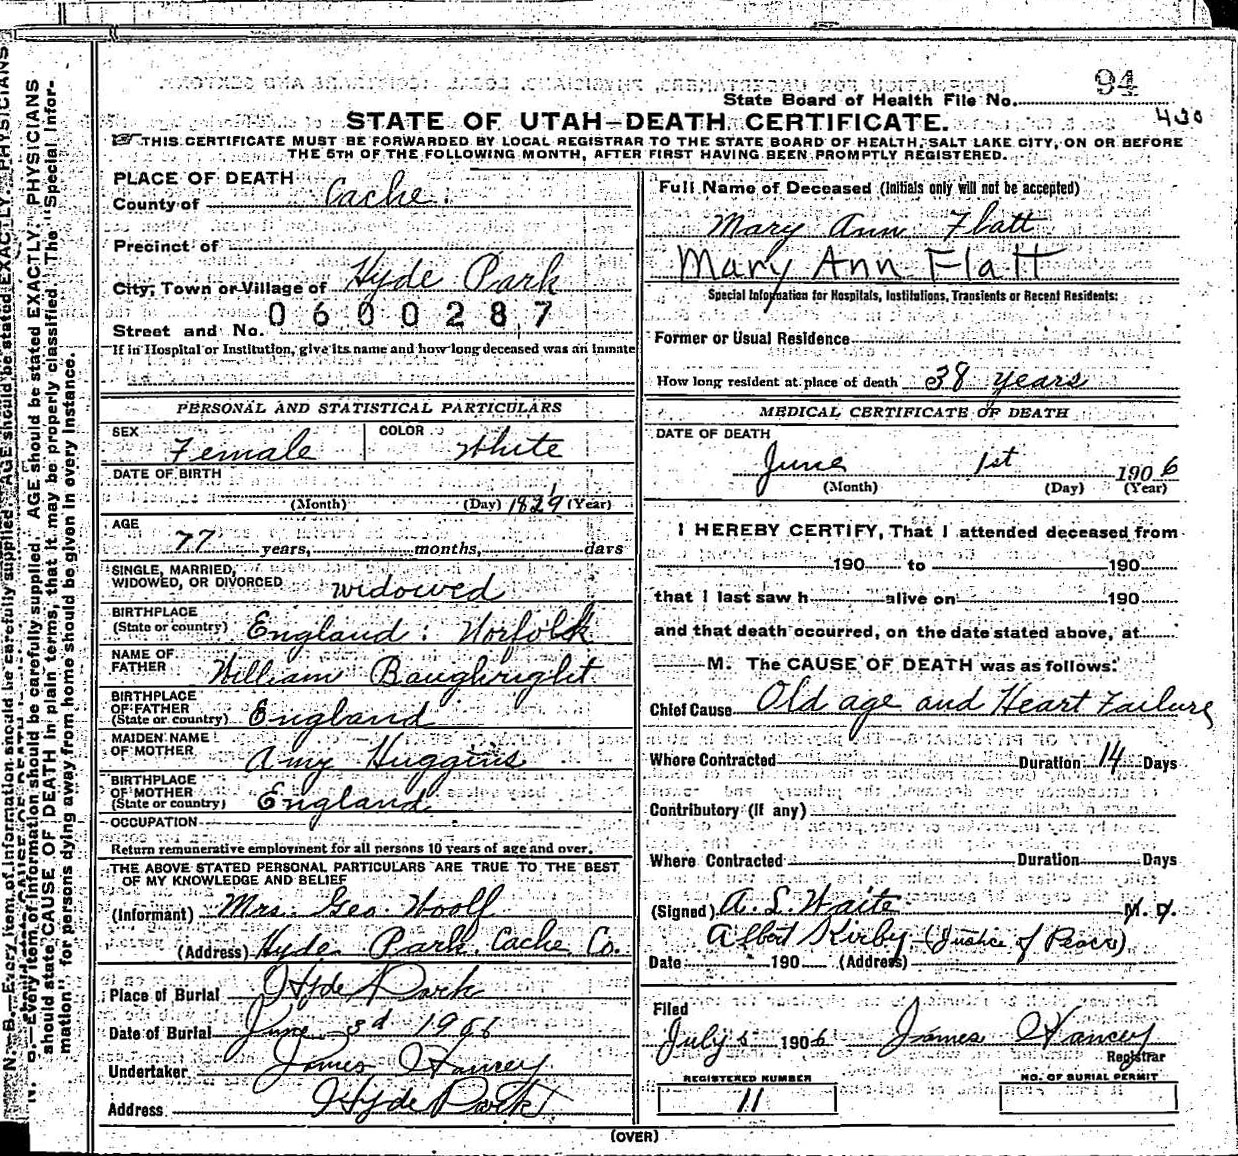 94
State Board of Health File No.
430
STATE OF UTAH—DEATH CERTIFICATE.
THIS CERTIFICATE MUST BE FORWARDED BY LOCAL REGISTRAR TO THE STATE BOARD OF HEALTH, SALT LAKE CITY, ON OR BEFORE
THE 5TH OF THE FOLLOWING MONTH, AFTER FIRST HAVING BEEN PROMPTLY REGISTERED.
PLACE OF DEATH
County of Cache.
Precinct of
City, Town or Village of Hyde Park
0600287
Street and No.
If in Hospital or Institution, give its name and how long deceased was an inmate
PERSONAL AND STATISTICAL PARTICULARS
SEX Female COLOR White
DATE OF BIRTH
(Month) (Day) 1829 (Year)
AGE
77 years, months, days
SINGLE, MARRIED,
WIDOWED, OR DIVORCED widowed
BIRTHPLACE
(State or country) England: Norfolk
NAME OF
FATHER William Baughright
BIRTHPLACE
OF FATHER
(State or country) England
MAIDEN NAME
OF MOTHER Amy Huggins
BIRTHPLACE
OF MOTHER
(State or country) England
OCCUPATION
Return remunerative employment for all persons 10 years of age and over.
THE ABOVE STATED PERSONAL PARTICULARS ARE TRUE TO THE BEST
OF MY KNOWLEDGE AND BELIEF
(Informant) Mrs. Geo. Woolf
(Address) Hyde Park. Cache Co.
Place of Burial Hyde Park
Date of Burial June 3d 1906
Undertaker James Hancey
Address Hyde Park
Full Name of Deceased (Initials only will not be accepted)
Mary Ann Flatt
Mary Ann Flatt
Special Information for Hospitals, Institutions, Transients or Recent Residents:
Former or Usual Residence
How long resident at place of death 38 years
MEDICAL CERTIFICATE OF DEATH
DATE OF DEATH
June 1st 1906
(Month) (Day) (Year)
I HEREBY CERTIFY, That I attended deceased from
190 to 190
that I last saw h alive on 190
and that death occurred, on the date stated above, at
M. The CAUSE OF DEATH was as follows:
Chief Cause Old age and Heart Failure
Where Contracted Duration 14 Days
Contributory (If any)
Where Contracted Duration Days
(Signed) A. L. Waite M. D.
Albert Kirby (Justice of Peace)
Date 190 (Address)
Filed
July 5 1906 James Hancey
Registrar
REGISTERED NUMBER
11
NO. OF BURIAL PERMIT
(OVER)
N. B.—Every item of information should be carefully supplied. AGE should be stated EXACTLY. PHYSICIANS
should state CAUSE OF DEATH in plain terms, that it may be properly classified. The "Special Infor-
mation" for persons dying away from home should be given in every instance.